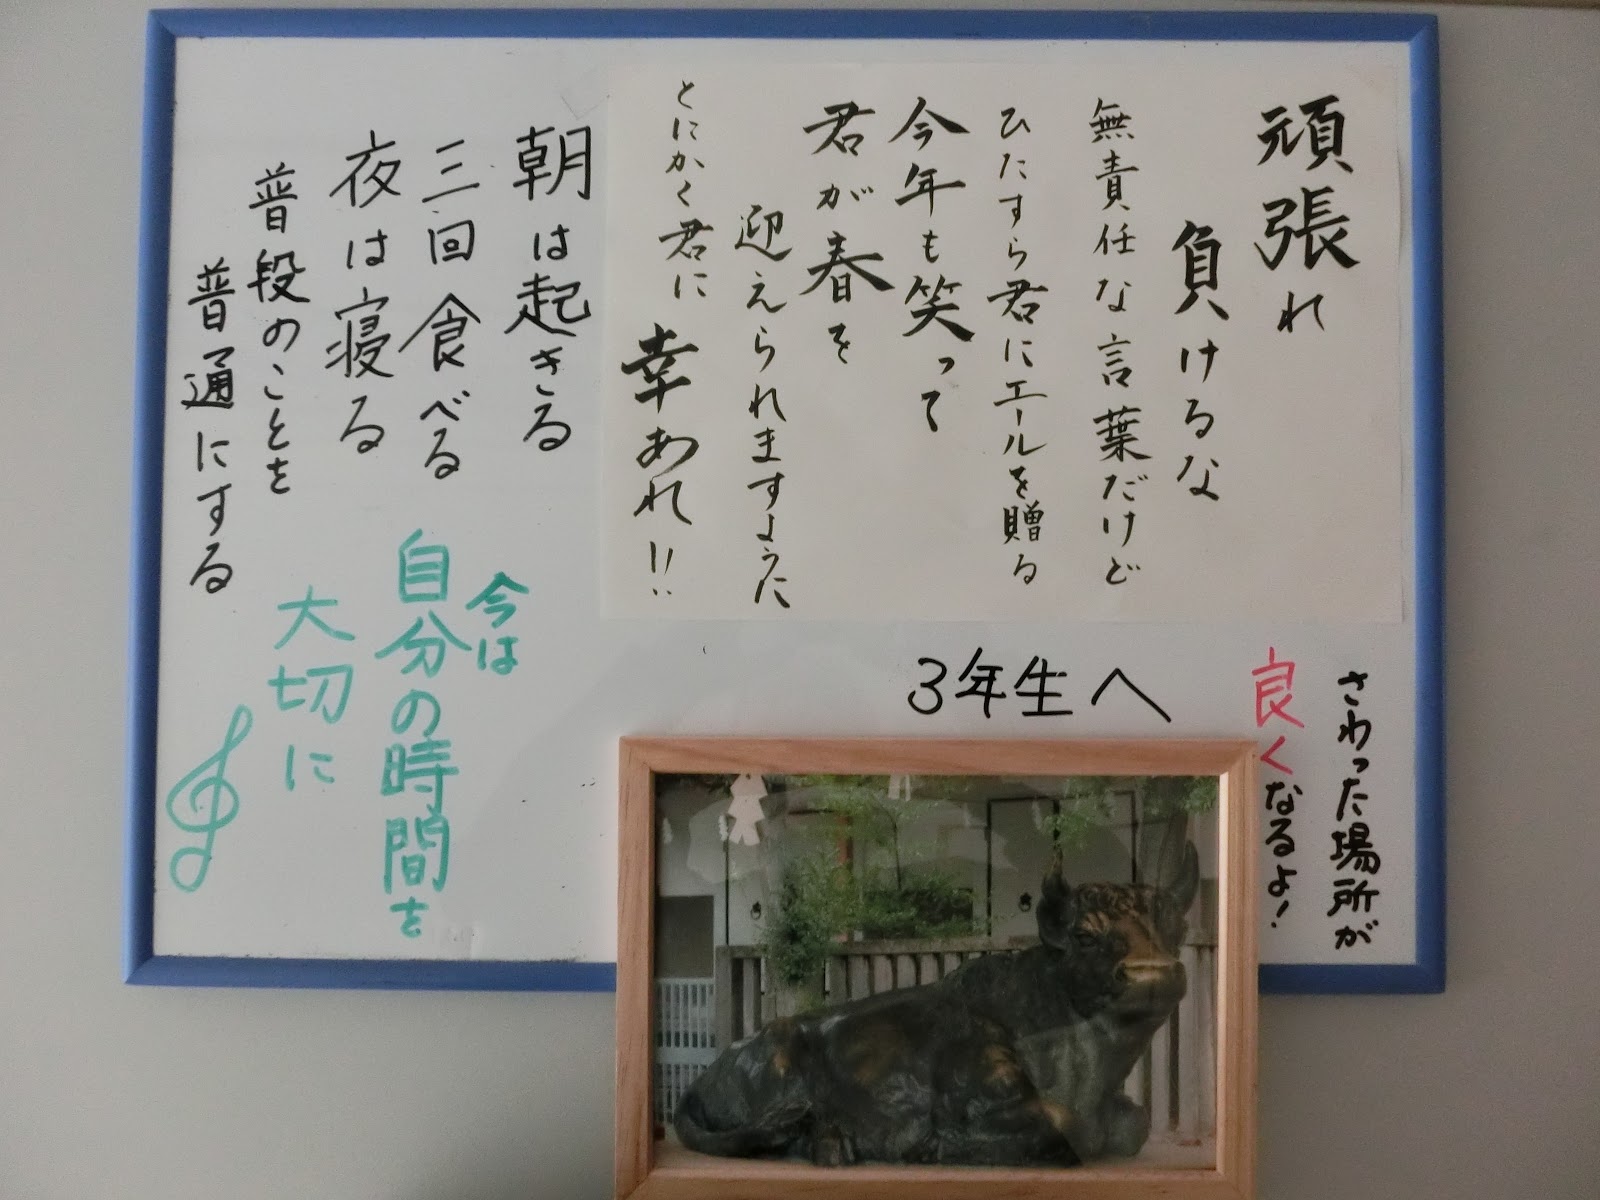 頑張れ
負けるな
無責任な言葉だけど
ひたすら君にエールを贈る
今年も笑って
君が春を
迎えられますように
とにかく君に
幸あれ!!
朝は起きる
三回食べる
夜は寝る
普段のことを
普通にする
今は
自分の時間を
大切に
3年生へ
さわった場所が
良くなるよ!